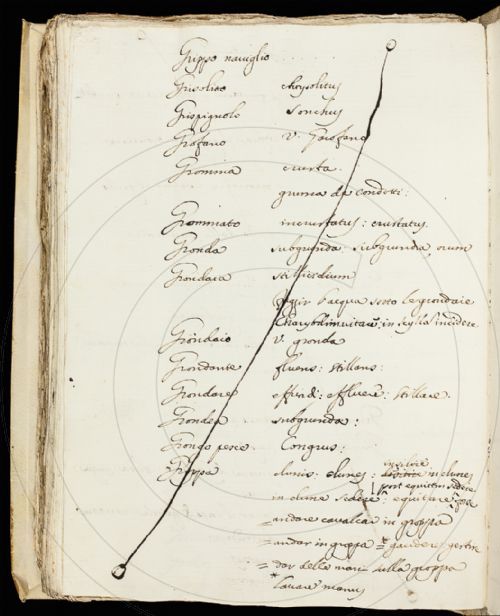 Grippo naviglio
Grisolito chrysolitus
Grispignolo Sonchus
Grofano v. Garofano
Gromma crusta
gruma de condotti:
Grommato incrustatus: crustatus
Gronda subgrunda: Subgrundia, orum
Grondaia stillicidium
fuggir l'acqua sotto le grondaie
Charybdim vitare: in scylla incidere
Grondaio v. gronda
Grondante fluens: stillans:
Grondare effundi: effluere: stillare
Grondea subgrunda:
Grongo pesce Congrus:
Groppa clunis: clunes: insilire in clunes
post equitem sedere
in clune sedere: equitare
= andare cavalcar in groppa
= andar in groppa =* gaudere
= dar delle mani sulla groppa
* lavare manus